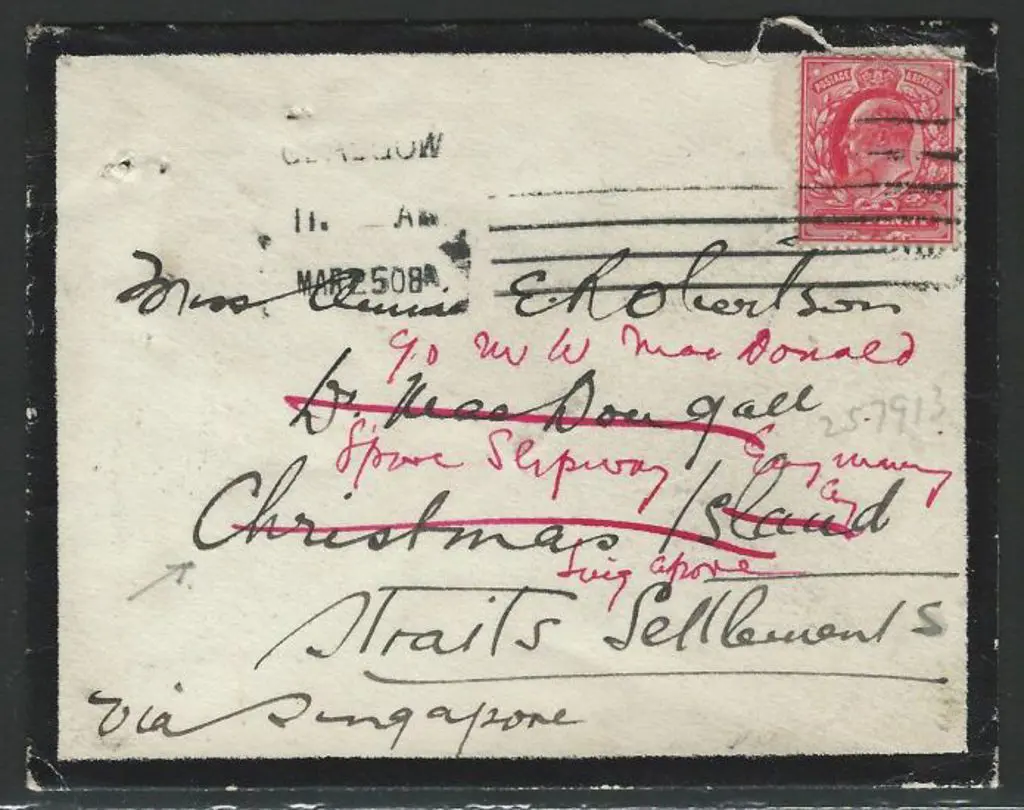 POSTAGE & REVENUE
GLASGOW
11. AM
MAR 25 08
Miss E. Robertson
c/o Mr W MacDonald
Dr. MacDougall
S'pore Slipway
Christmas Island
Singapore
Straits Settlements
via Singapore